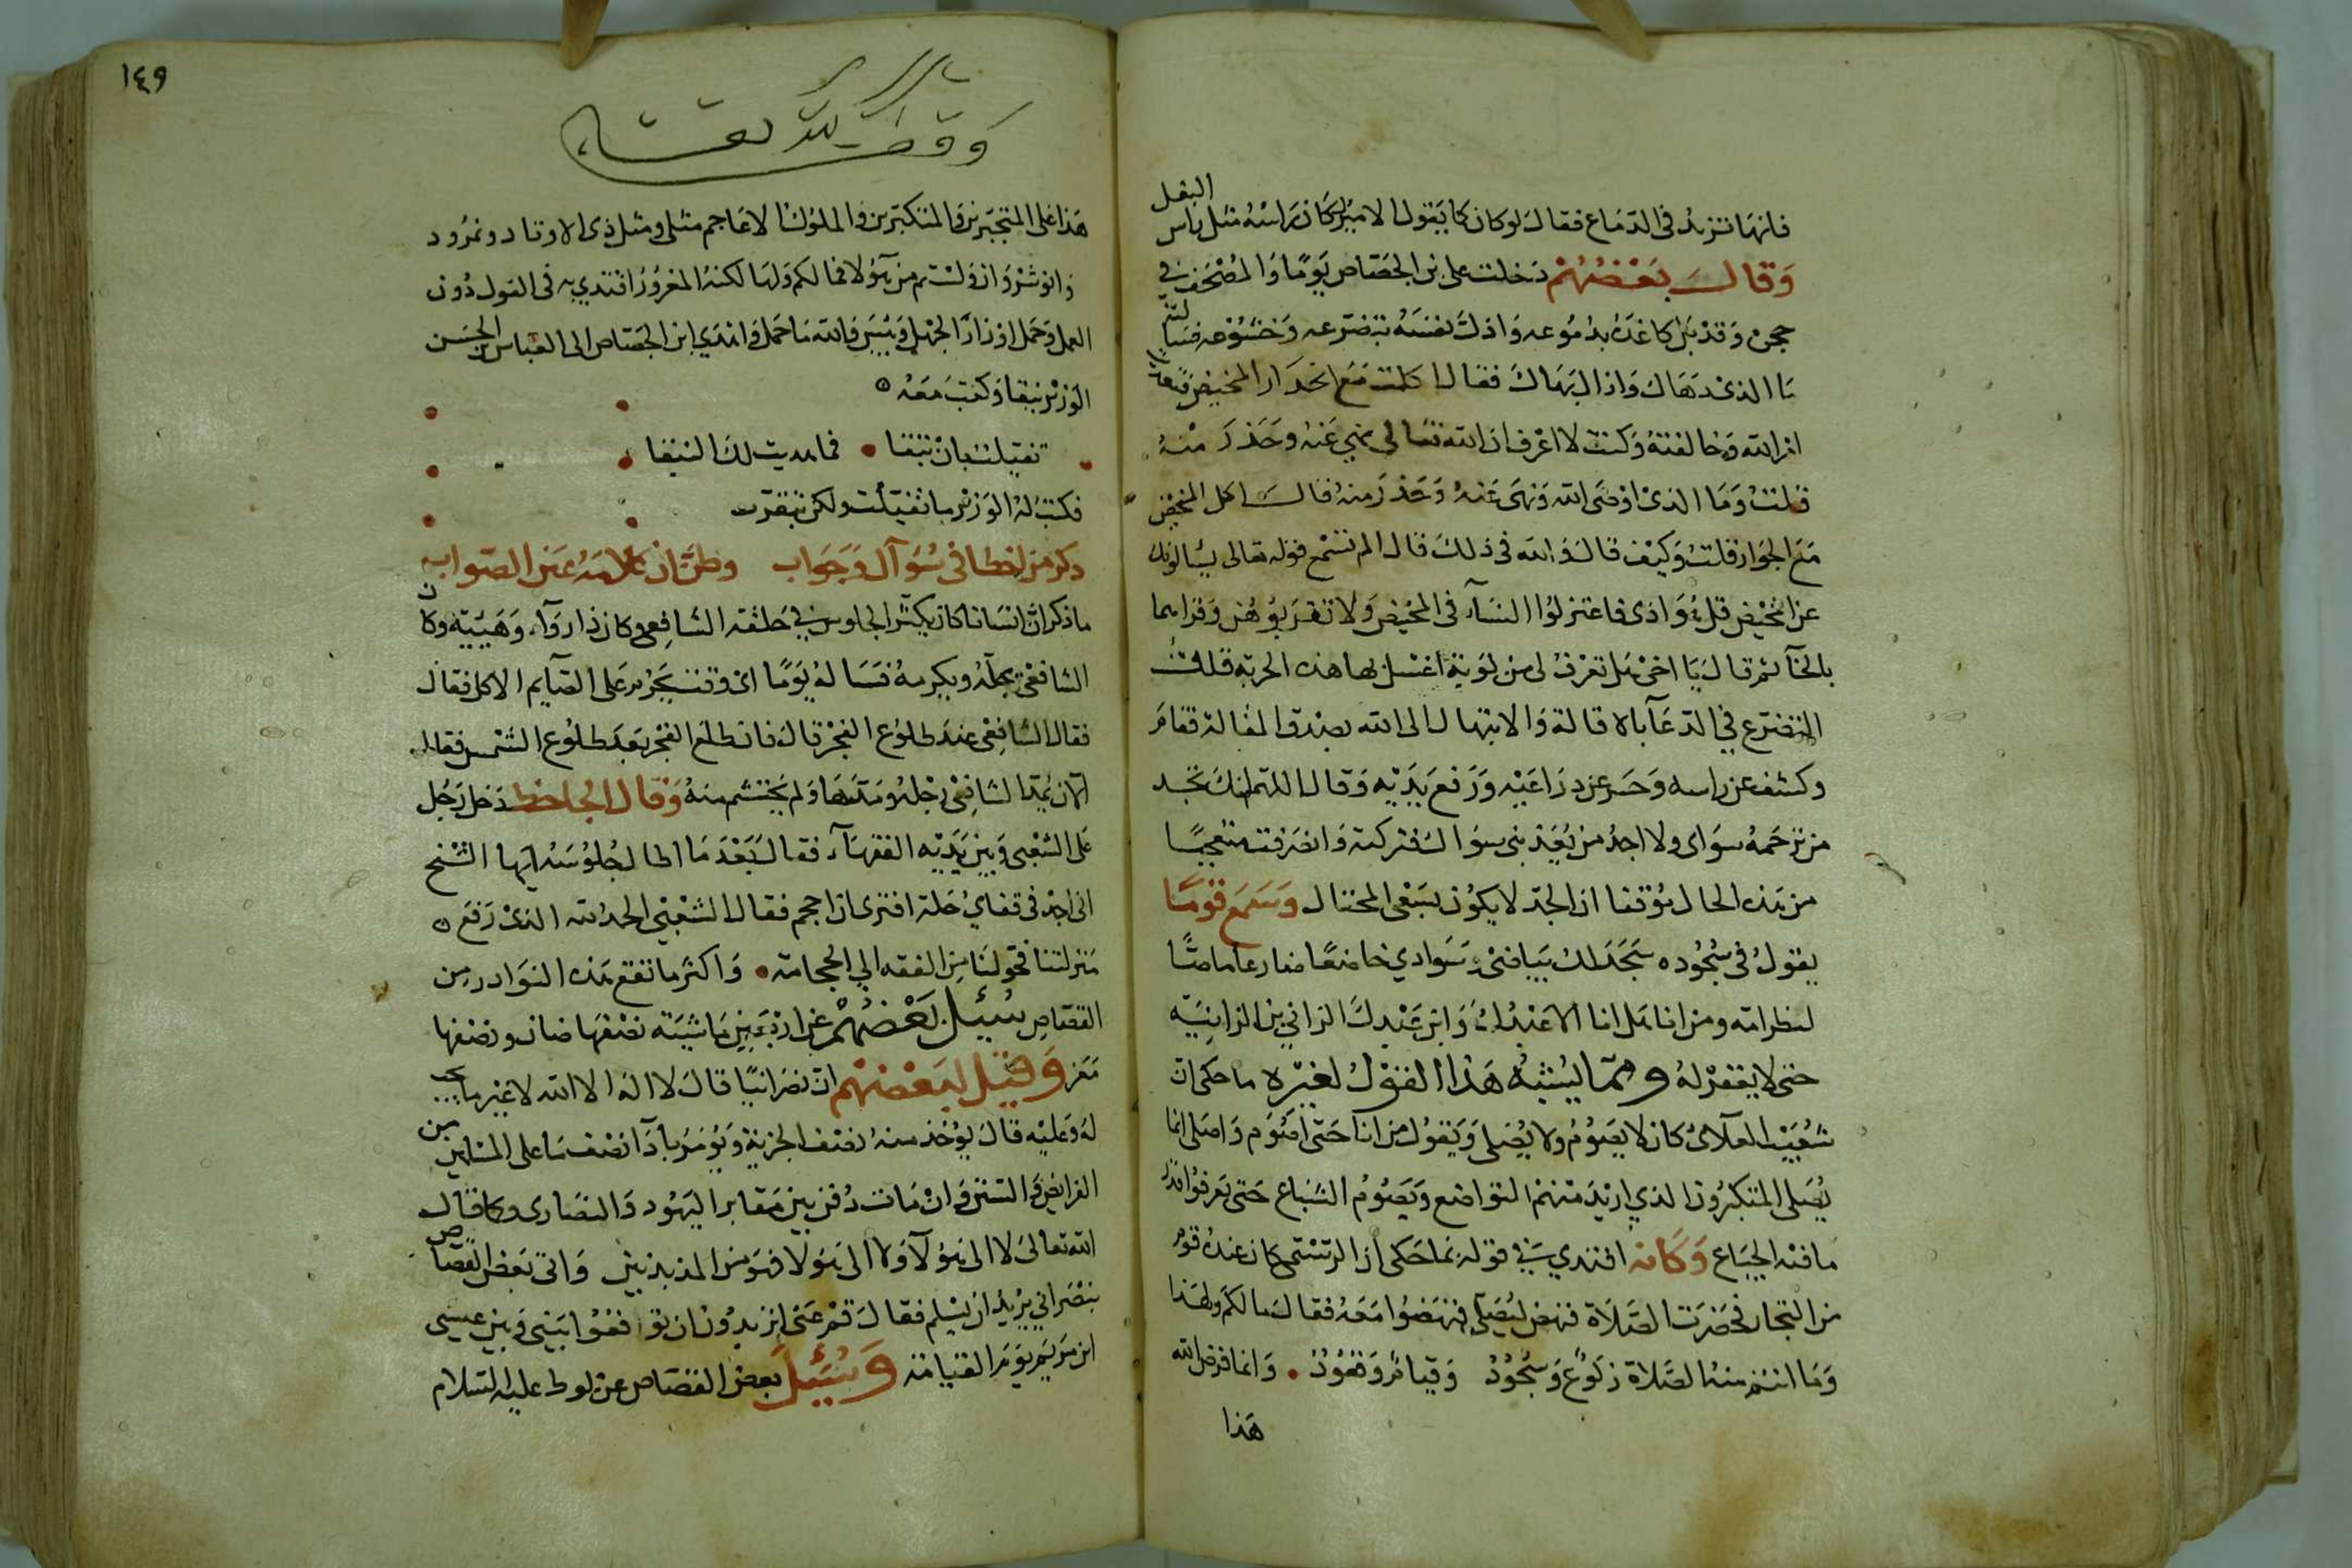 فانها تزيد في الدماغ فقال لو كان كما يقول الامير لكان راسه مثل راس البغل
وقال بعضهم دخلت على ابن الجصاص يوما والمصحف في
حجره وقد بل كاغده بدموعه واذل نفسه بتضرعه وخشوعه فسالته
ما الذي دهاك واذا البهاك فقال اكلت مع الجوار المخيض
امر الله وخالفته وكنت لا اعرف ان الله تعالى نهى عنه وحذر منه
فقلت وما الذي اوصى الله ونهى عنه وحذر منه قال اكل المخيض
مع الجوار قلت وكيف قال والله في ذلك قال الم تسمع قوله تعالى يسالونك
عن المخيض قل هو اذى فاعتزلوا النساء في المخيض ولا تقربوهن وقراهما
بالخاء ثم قال يا اخي هل تعرف لي من توبة اغسل بها هذه الحربة قلت
التضرع في الدعاء باله قاله والابتهال الى الله بصدق المقالة فقام
وكشف عن راسه وحسر عن ذراعيه ورفع يديه وقال اللهم انك تجد
من ترحمه سواي ولا اجد من يعذبني سواك فتركته وانصرفت متعجبا
من هذه الحال موقنا ان الجد لا يكون بسعي المحتال وسمع قوما
يقول في سجوده سجد لك بياضي وسوادي خاضعا ضارعا ماصا
لبظر امه ومن انا هل انا الا عبدك وابن عبدك الزاني بن الزانية
حتى لا يغفر له ومما يشبه هذا القول لغيره ما حكى ان
شعيب العلاي كان لا يصوم ولا يصلي ويقول من انا حتى اصوم واصلي انما
يصلي المتكبرون الذي اريد منهم التواضع ويصوم الشباع حتى يعرفوا قدر
ما فيه الجياع وكانه اقتدي في قوله بما حكى ان الرستمي كان عنده قوم
من التجار فحضرت الصلاة فنهض ليصلي فنهضوا معه فقال مالكم ولهذا
وما انتم منه الصلاة ركوع وسجود وقيام وقعود • وانما فرض الله
هذا
١٤٩
وقف لله تعالى
هذا على المتجبرين والمتكبرين والملوك الاعاجم مثلي ومثل ذي الاوتاد ونمرود
وانوشروان ولستم من هؤلا فما لكم ولها لكنه المغرور اقتدي به في القول دون
العمل وحمل اوزار الجهل وبيس والله ما حمل واهدى ابن الجصاص الى العباس بن الحسن
الوزير نبقا وكتب معه
تفيلت بان تبقا • فاهديت لك النبقا
فكتب له الوزير ما تفيلت ولكن تبقرت
ذكر من اخطا في سؤال وجواب وظن ان كلامه عين الصواب
ما ذكر ان انسانا كان يكثر الجلوس في حلقة الشافعي وكان ذا رواء وهيبة وكان
الشافعي يجله ويكرمه فساله يوما اي وقت يحرم على الصايم الاكل فقال
فقال الشافعي عند طلوع الفجر قال فان طلع الفجر بعد طلوع الشمس فقال
الان يمد الشافعي رجله ومدها ولم يحتشم منه وقال الجاحظ دخل رجل
على الشعبي وبين يديه الفقهاء فقال بعد ما اطال جلوسه ايها الشيخ
اني اجد في قفاي حكة افترى ان احجم فقال الشعبي الحمد لله الذي رفع
منزلتنا فحولنا من الفقه الى الحجامة • واكثر ما تقع هذه النوادر من
القصاص سئل بعضهم عن اربعين ماشية نصفها ضان ونصفها
معز وقيل لبعضهم ان نصرانيا قال لا اله الا الله لا غير ما يجب
له وعليه قال يؤخذ منه نصف الجزية ويؤمر باداء نصف ما على المسلمين من
الفرايض والسنن وان مات دفن بين مقابر اليهود والنصارى وكما قال
الله تعالى لا الى هؤلاء ولا الى هؤلا فهو من المذبذبين واتى بعض القصاص
بنصراني يريد ان يسلم فقال قم عني اتريدون ان توقفوا بيني وبين عيسى
ابن مريم يوم القيامة وسئل بعض القصاص عن لوط عليه السلام